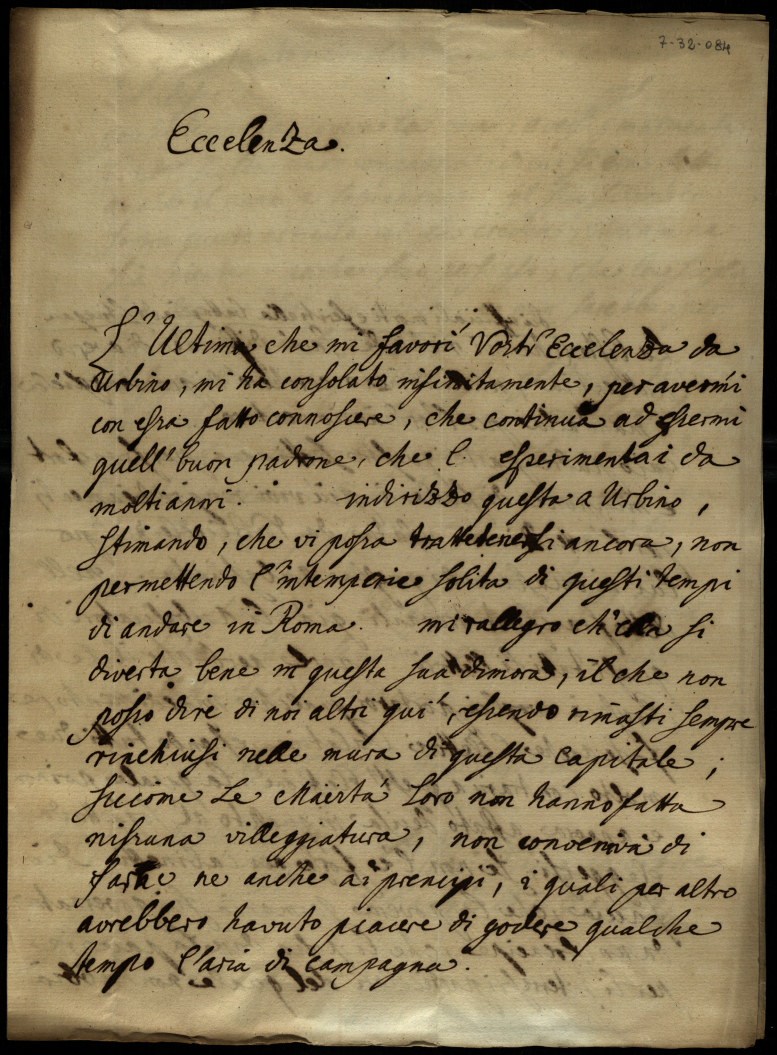 7-32-084
Eccelenza.
L'Ultima che mi favorì Vostr' Eccelenza da
Urbino, mi ha consolato infinitamente, per avermi
con essa fatto connoscere, che continua ad essermi
quell' buon padrone, che l' esperimentai da
molti anni. indirizzo questa a Urbino,
stimando, che vi possa trattenersi ancora, non
permettendo l'intemperie solita di questi tempi
di andare in Roma. mi rallegro ch'ella si
diverta bene in questa sua dimora, il che non
posso dire di noi altri qui, essendo rimasti sempre
rinchiusi nelle mura di questa Capitale;
siccome Le Maestà Loro non hanno fatta
nissuna villeggiatura, non conveniva di
farne ne anche ai prencipi, i quali per altro
avrebbero havuto piacere di godere qualche
tempo l'aria di campagna.